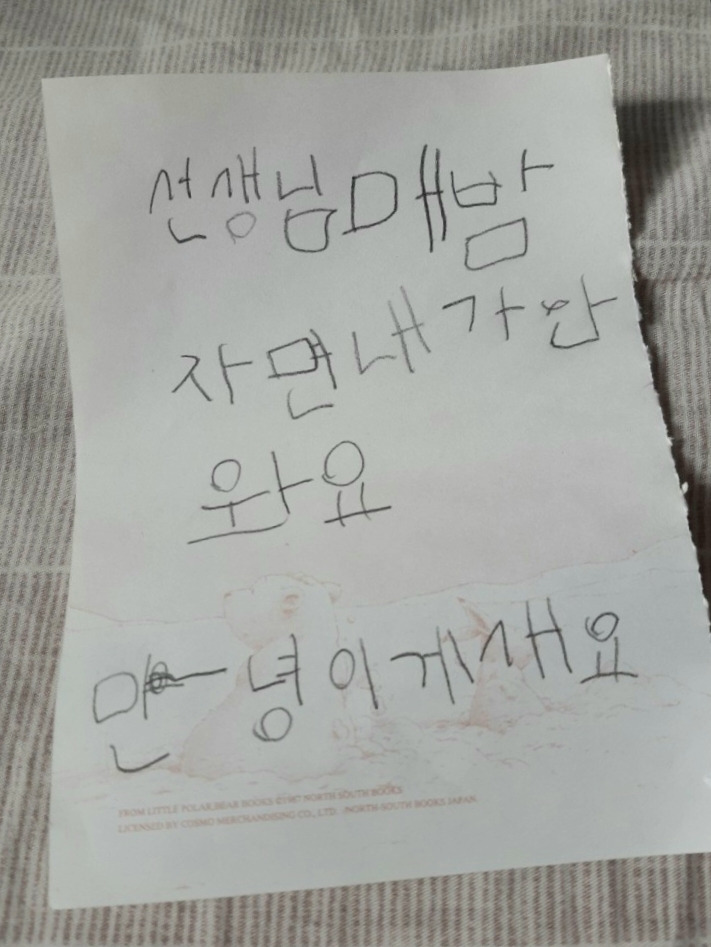 선생님매밤
자면내가안
와요
만녕이게새요
FROM LITTLE POLAR BEAR BOOKS ©1987 NORTH SOUTH BOOKS
LICENSED BY COSMO MERCHANDISING CO., LTD. /NORTH-SOUTH BOOKS JAPAN.